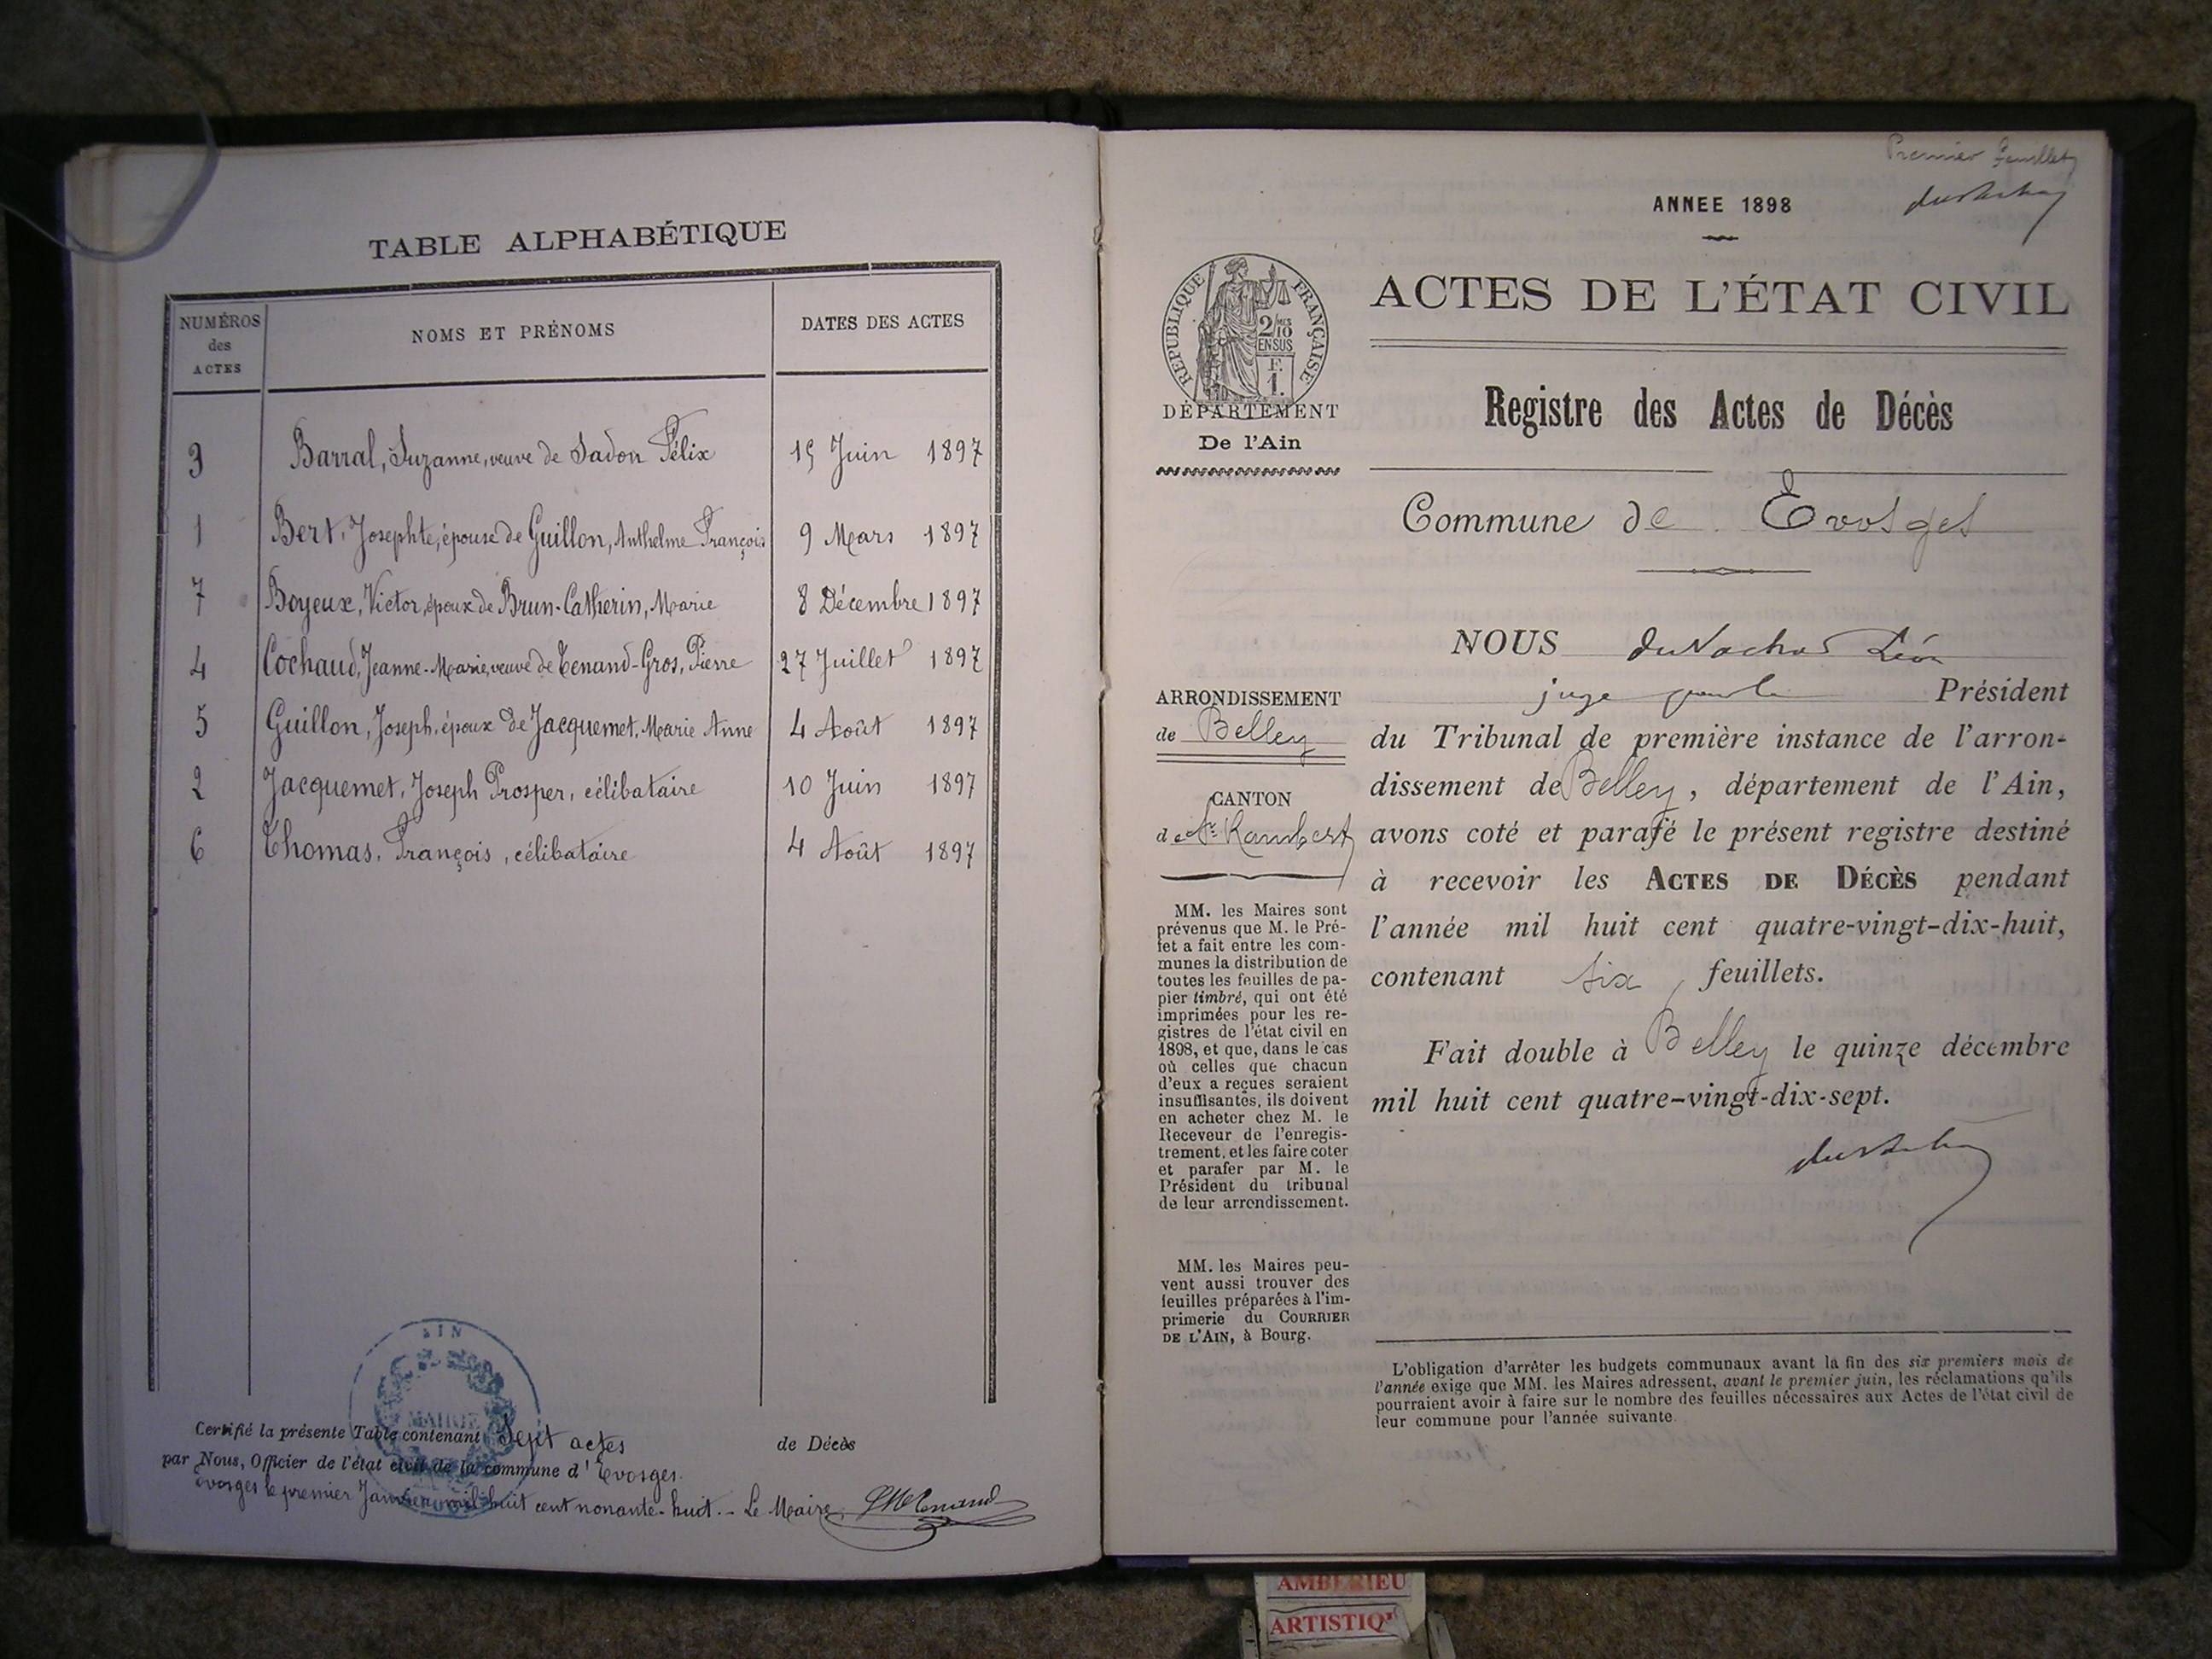 TABLE ALPHABÉTIQUE
NUMÉROS des ACTES
NOMS ET PRÉNOMS
DATES DES ACTES
3 Barral, Suzanne, veuve de Sadon Félix 15 Juin 1897
1 Bert, Josephte, épouse de Guillon, Anthelme François 9 Mars 1897
7 Boyeux, Victor, époux de Brun-Catherin, Marie 8 Décembre 1897
4 Cochaud, Jeanne-Marie, veuve de Tenand-Gros, Pierre 27 Juillet 1897
5 Guillon, Joseph, époux de Jacquemet, Marie Anne 4 Août 1897
2 Jacquemet, Joseph Prosper, célibataire 10 Juin 1897
6 Thomas, François, célibataire 4 Août 1897
AIN
MAIRIE
Certifié la présente Table contenant Sept actes de Décès
par Nous, Officier de l'état civil de la commune d'Evosges.
Evosges le premier Janvier mil huit cent nonante-huit. - Le Maire,
Premier feuillet
ANNEE 1898
RÉPUBLIQUE FRANÇAISE
2/10 MES
EN SUS
F.
1.
ACTES DE L'ÉTAT CIVIL
DÉPARTEMENT
De l'Ain
Registre des Actes de Décès
Commune de Evosges
ARRONDISSEMENT
de Belley
CANTON
de St Rambert
MM. les Maires sont
prévenus que M. le Pré-
fet a fait entre les com-
munes la distribution de
toutes les feuilles de pa-
pier timbré, qui ont été
imprimées pour les re-
gistres de l'état civil en
1898, et que, dans le cas
où celles que chacun
d'eux a reçues seraient
insuffisantes, ils doivent
en acheter chez M. le
Receveur de l'enregis-
trement, et les faire coter
et parafer par M. le
Président du tribunal
de leur arrondissement.
MM. les Maires peu-
vent aussi trouver des
feuilles préparées à l'im-
primerie du COURRIER
DE L'AIN, à Bourg.
NOUS Léon
juge pour le Président
du Tribunal de première instance de l'arron-
dissement de Belley, département de l'Ain,
avons coté et parafé le présent registre destiné
à recevoir les ACTES DE DÉCÈS pendant
l'année mil huit cent quatre-vingt-dix-huit,
contenant six feuillets.
Fait double à Belley le quinze décembre
mil huit cent quatre-vingt-dix-sept.
L'obligation d'arrêter les budgets communaux avant la fin des six premiers mois de
l'année exige que MM. les Maires adressent, avant le premier juin, les réclamations qu'ils
pourraient avoir à faire sur le nombre des feuilles nécessaires aux Actes de l'état civil de
leur commune pour l'année suivante.
AMBERIEU
ARTISTIQ